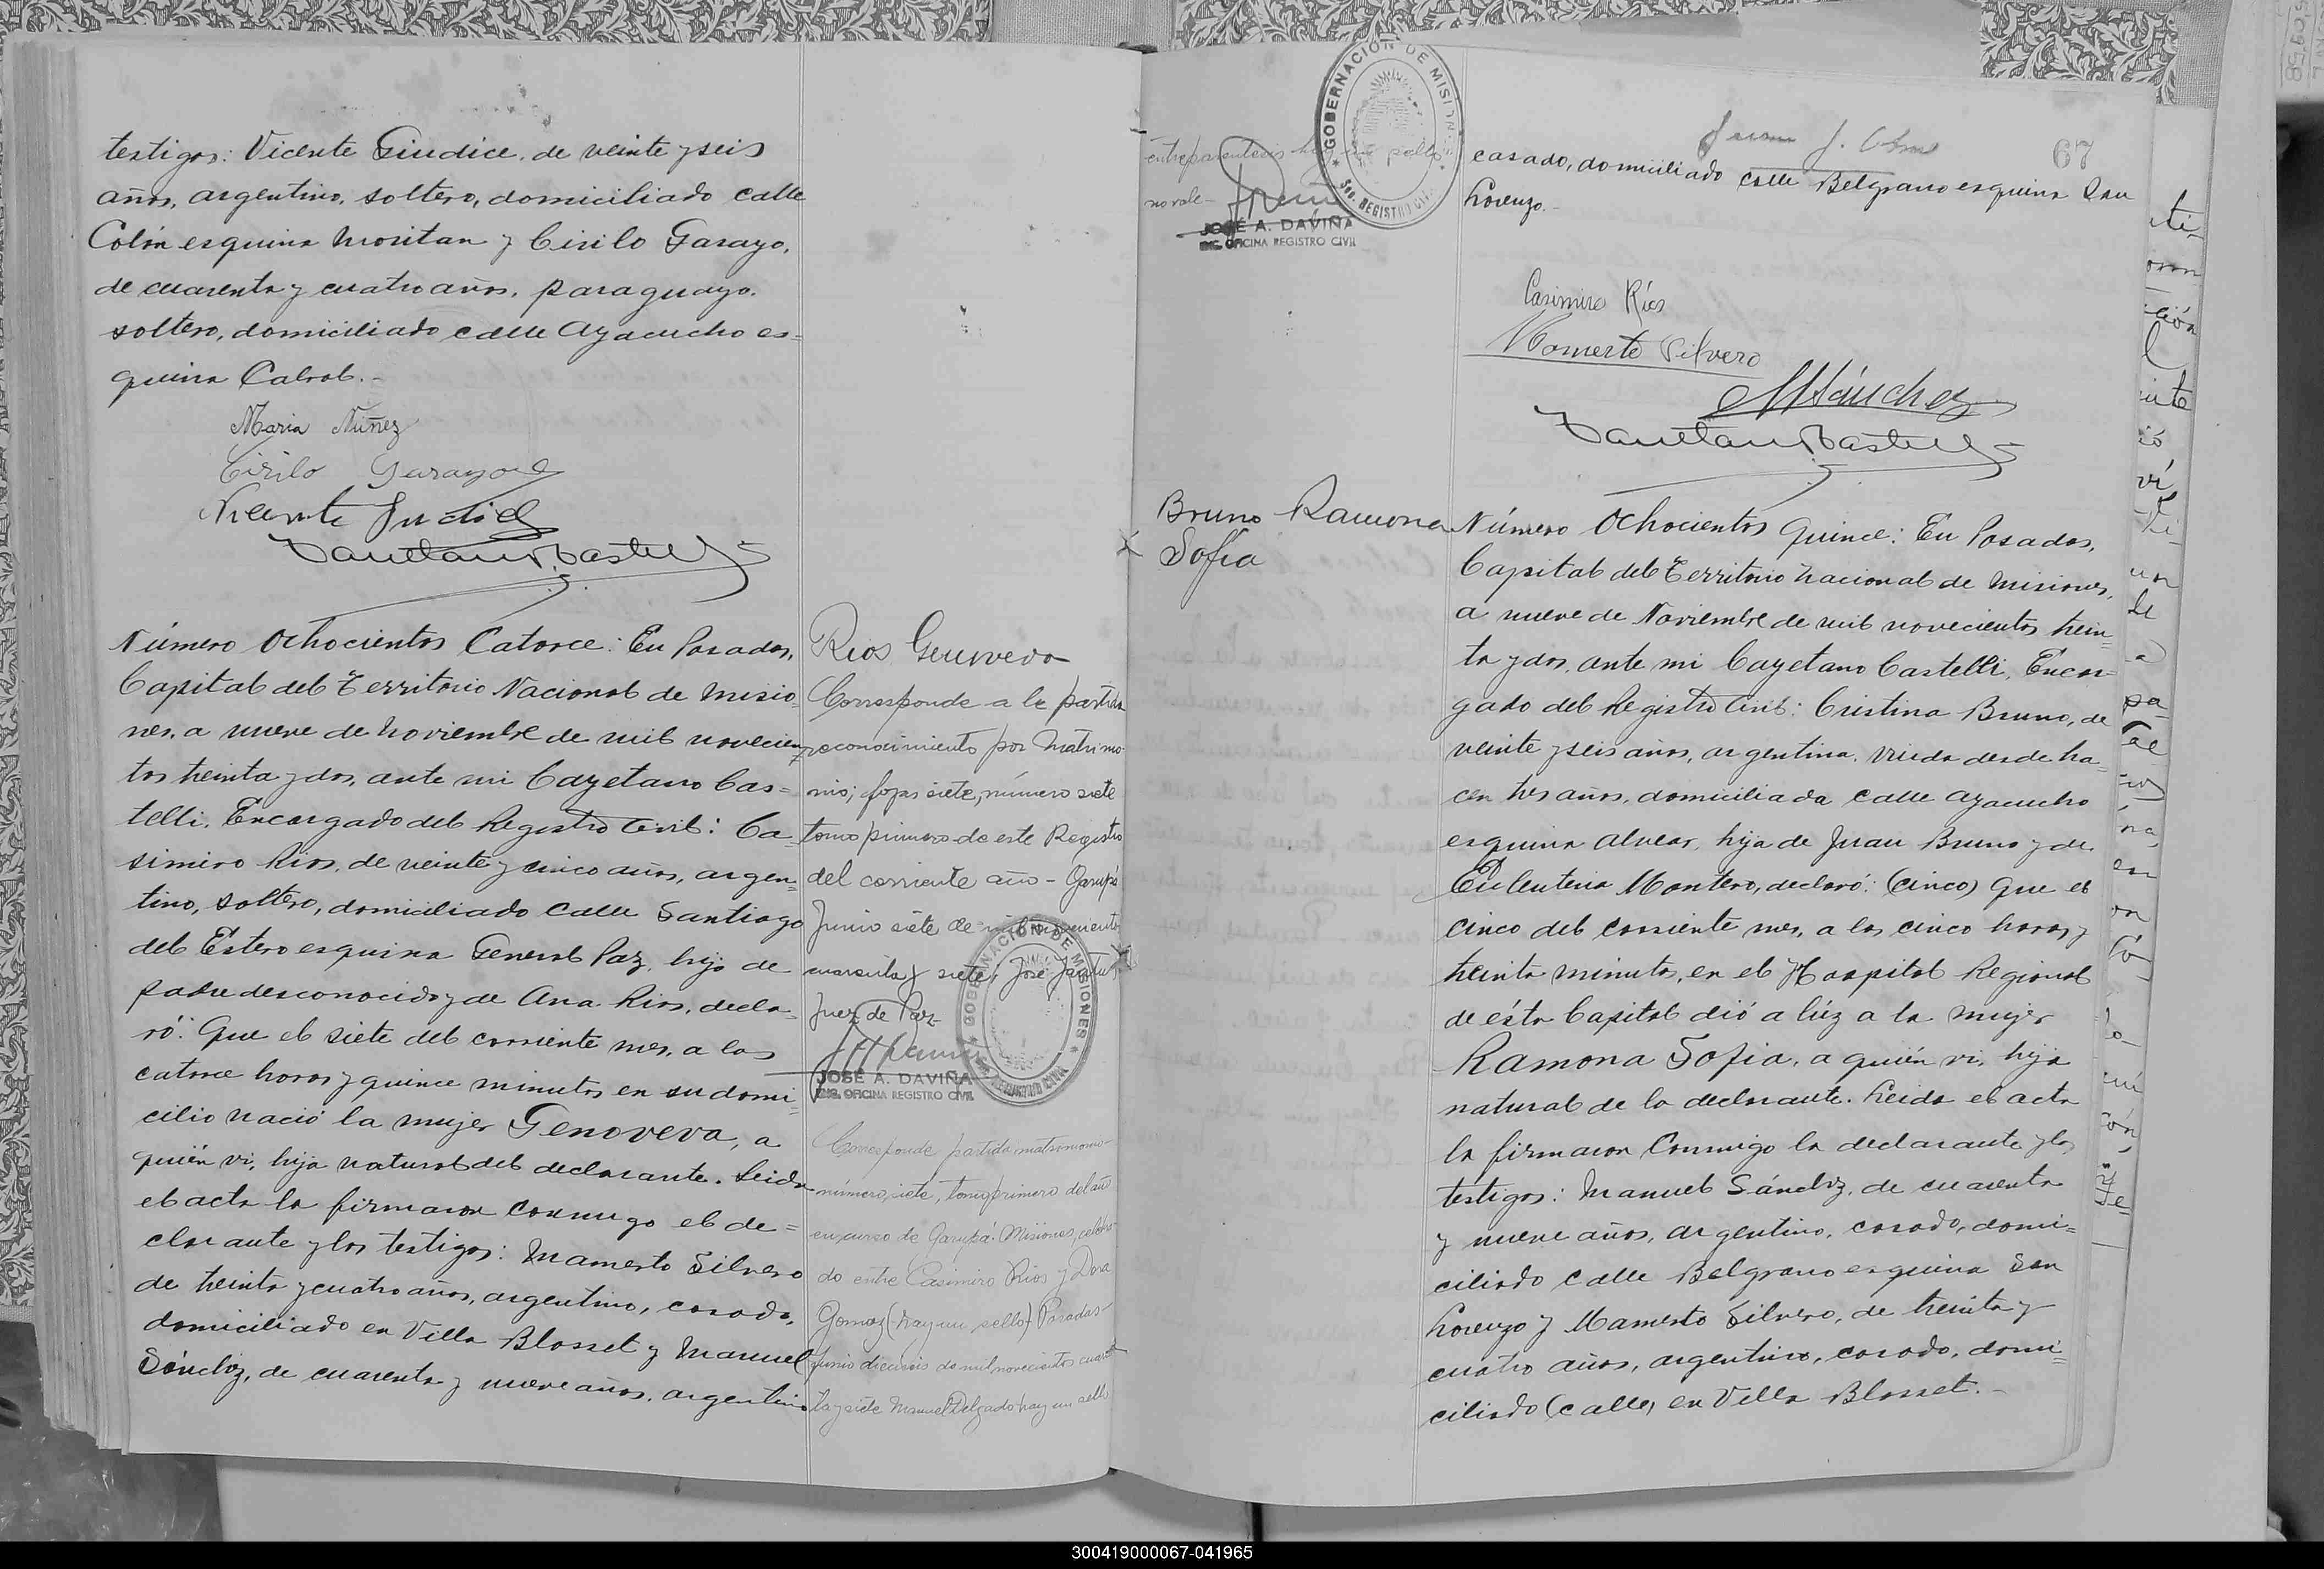 testigos: Vicente Giudice, de veinte y seis
años, argentino, soltero, domiciliado calle
Colón esquina Moritan y Cirilo Garayo,
de cuarenta y cuatro años, paraguayo,
soltero, domiciliado calle Ayacucho es=
quina Cabral.-
Maria Nuñez
Cirilo Garayo
Vicente Giudice
Número Ochocientos Catorce: En Posadas,
Capital del Territorio Nacional de Misio
nes, a nueve de Noviembre de mil novecien
tos treinta y dos, ante mi Cayetano Cas=
telli, Encargado del Registro Civil: Ca
simiro Rios, de veinte y cinco años, argen=
tino, soltero, domiciliado calle Santiago
del Estero esquina General Paz, hijo de
padre desconocido y de Ana Rios, decla=
ró: Que el siete del corriente mes, a las
catorce horas y quince minutos en su domi=
cilio nació la mujer Genoveva, a
quién vi, hija natural del declarante. Leida
el acta la firmaron conmigo el de=
clarante y los testigos: Mamerto Silvero
de treinta y cuatro años, argentino, casado,
domiciliado en Villa Blosset y Manuel
Sánchez, de cuarenta y nueve años, argentino
Rios Genoveva
Corresponde a la partida
reconocimiento por Matrimo-
nio; fojas siete, número siete
tomo primero de este Registro
del corriente año - Garupá
Junio siete de mil novecientos
cuarenta y siete, José
Juez de Paz-
JOSÉ A. DAVIÑA
ENC. OFICINA REGISTRO CIVIL
GOBERNACIÓN DE MISIONES
Corresponde partida matrimonio
número siete, tomo primero del año
en curso de Garupá: Misiones, celebra-
do entre Casimiro Rios y Dora
Gomez (hay un sello) Posadas-
Junio dieciseis de mil novecientos cuaren
ta y siete Manuel Delgado hay un sello
entreparentesis hay un sello
no vale-
GOBERNACIÓN DE MISIONES
REGISTRO CIVIL
JOSÉ A. DAVIÑA
ENC. OFICINA REGISTRO CIVIL
67
casado, domiciliado calle Belgrano esquina San
Lorenzo.-
Casimiro Ríos
Mamerto Silvero
MSánchez
Bruno Ramona
Sofia
Número Ochocientos Quince: En Posadas,
Capital del Territorio Nacional de Misiones,
a nueve de Noviembre de mil novecientos trein
ta y dos, ante mi Cayetano Castelli, Encar=
gado del Registro Civil: Cristina Bruno, de
veinte y seis años, argentina, viuda desde ha=
cen tres años, domiciliada calle Ayacucho
esquina Alvear, hija de Juan Bruno y de
Eulenteria Montero, declaró: (cinco) Que el
cinco del corriente mes, a las cinco horas y
treinta minutos, en el Hospital Regional
de ésta Capital dió a lúz a la mujer
Ramona Sofia, a quién vi, hija
natural de la declarante. Leida el acta
la firmaron conmigo la declarante y los
testigos: Manuel Sánchez, de cuarenta
y nueve años, argentino, casado, domi=
ciliado calle Belgrano esquina San
Lorenzo y Mamerto Silvero, de treinta y
cuatro años, argentino, casado, domi=
ciliado (calle) en Villa Blosset.-
300419000067-041965